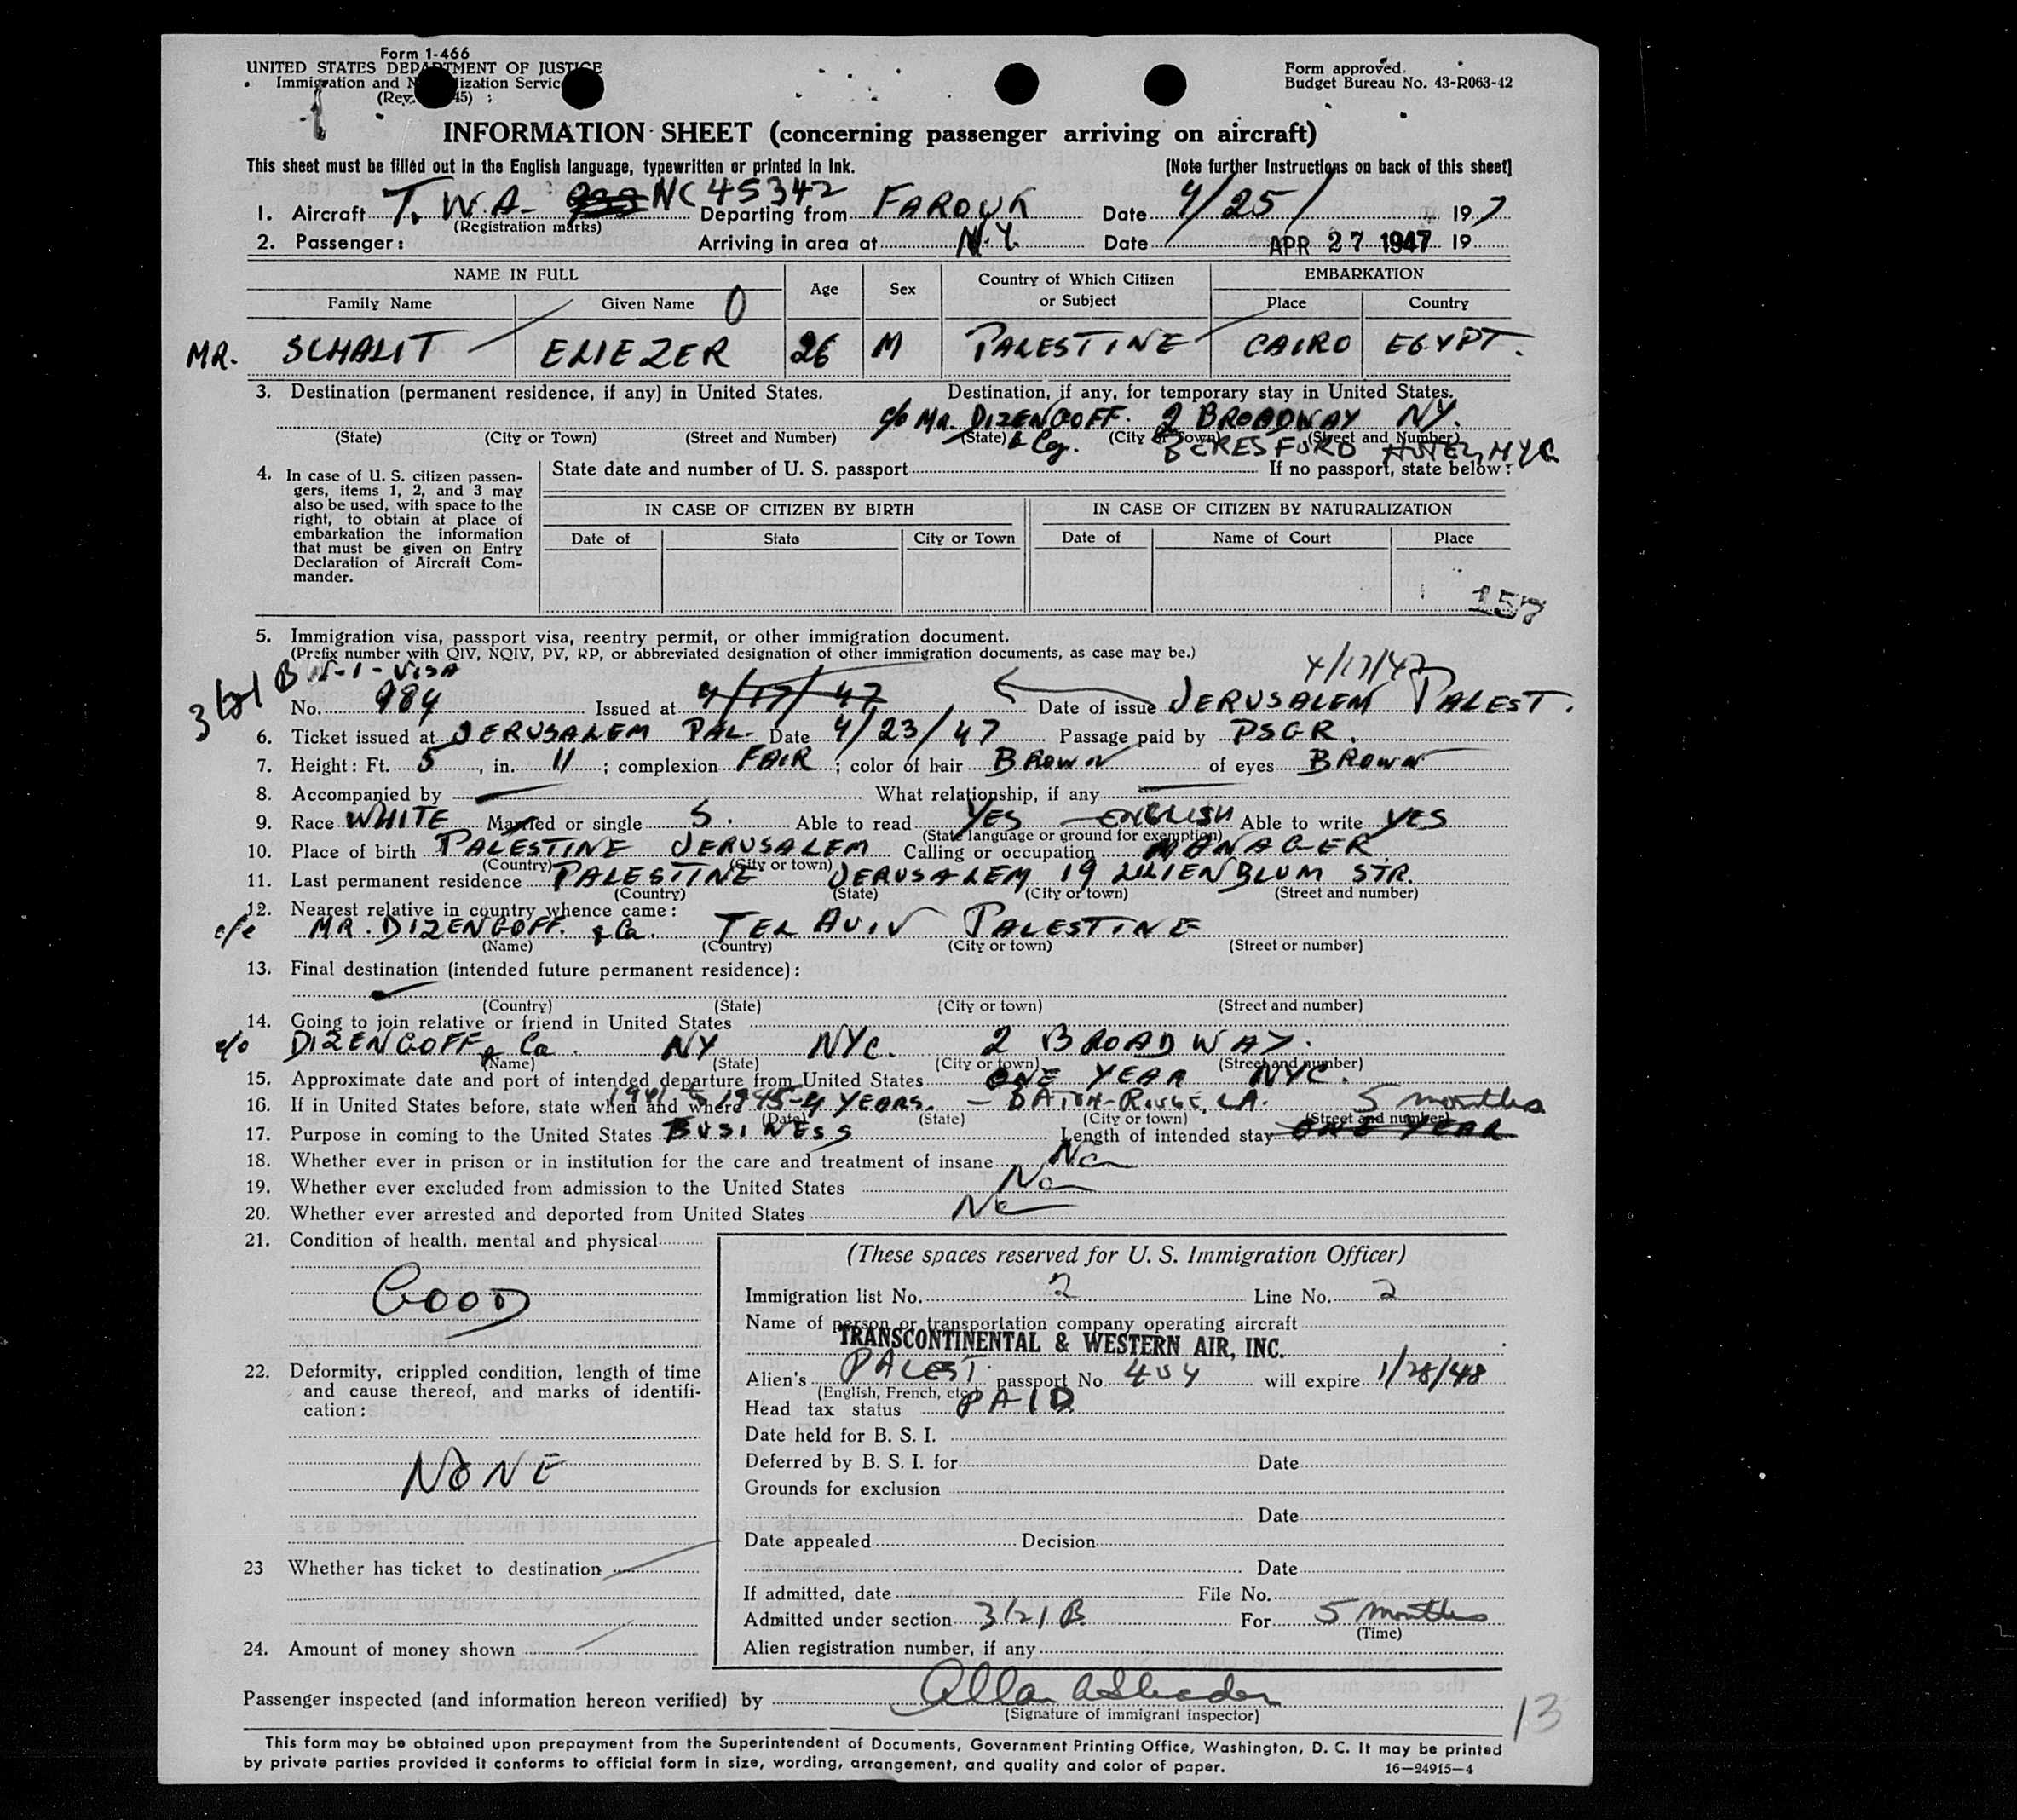 Form 1-466
UNITED STATES DEPARTMENT OF JUSTICE
Immigration and N lization Servic
(Rev. 45)
Form approved.
Budget Bureau No. 43-R063-42
INFORMATION SHEET (concerning passenger arriving on aircraft)
This sheet must be filled out in the English language, typewritten or printed in ink. [Note further Instructions on back of this sheet]
1. Aircraft T.W.A- NC 45342 Departing from FAROUK Date 4/25/ 197
(Registration marks)
2. Passenger: Arriving in area at N.Y. Date APR 27 1947 19
NAME IN FULL Age Sex Country of Which Citizen or Subject EMBARKATION
Family Name Given Name Place Country
MR. SCHALIT ELIEZER 26 M PALESTINE CAIRO EGYPT.
3. Destination (permanent residence, if any) in United States. Destination, if any, for temporary stay in United States.
c/o MR. DIZENGOFF. 2 BROADWAY NY.
(State) (City or Town) (Street and Number) (State) (City or Town) (Street and Number)
& Co. BERESFORD HOTEL, NYC
4. In case of U. S. citizen passengers, items 1, 2, and 3 may also be used, with space to the right, to obtain at place of embarkation the information that must be given on Entry Declaration of Aircraft Commander.
State date and number of U. S. passport If no passport, state below:
IN CASE OF CITIZEN BY BIRTH IN CASE OF CITIZEN BY NATURALIZATION
Date of State City or Town Date of Name of Court Place
157
5. Immigration visa, passport visa, reentry permit, or other immigration document.
(Prefix number with QIV, NQIV, PV, RP, or abbreviated designation of other immigration documents, as case may be.)
3/21 B N-1-VISA 4/17/47
No. 984 Issued at 4/17/47 Date of issue JERUSALEM PALEST.
6. Ticket issued at JERUSALEM PAL. Date 4/23/47 Passage paid by PSGR.
7. Height: Ft. 5, in. 11; complexion FAIR; color of hair BROWN of eyes BROWN
8. Accompanied by — What relationship, if any —
9. Race WHITE Married or single S. Able to read YES - ENGLISH Able to write YES
(State language or ground for exemption)
10. Place of birth PALESTINE JERUSALEM Calling or occupation MANAGER
(Country) (City or town)
11. Last permanent residence PALESTINE JERUSALEM 19 LILIENBLUM STR.
(Country) (State) (City or town) (Street and number)
12. Nearest relative in country whence came:
c/o MR. DIZENGOFF. & Co. TEL AVIV PALESTINE
(Name) (Country) (City or town) (Street or number)
13. Final destination (intended future permanent residence):
(Country) (State) (City or town) (Street and number)
14. Going to join relative or friend in United States
c/o DIZENGOFF & Co. NY NYC. 2 BROADWAY.
(Name) (State) (City or town) (Street and number)
15. Approximate date and port of intended departure from United States ONE YEAR NYC.
16. If in United States before, state when and where 1941 to 1945-4 YEARS. - BATON-ROUGE, LA. 5 months
(Date) (State) (City or town) (Street and number)
17. Purpose in coming to the United States BUSINESS Length of intended stay ONE YEAR
18. Whether ever in prison or in institution for the care and treatment of insane No
19. Whether ever excluded from admission to the United States No
20. Whether ever arrested and deported from United States No
21. Condition of health, mental and physical
GOOD
22. Deformity, crippled condition, length of time and cause thereof, and marks of identification:
NONE
23 Whether has ticket to destination
24. Amount of money shown
(These spaces reserved for U. S. Immigration Officer)
Immigration list No. 2 Line No. 2
Name of person or transportation company operating aircraft
TRANSCONTINENTAL & WESTERN AIR, INC.
Alien's PALEST. passport No. 484 will expire 1/28/48
(English, French, etc.)
Head tax status PAID
Date held for B. S. I.
Deferred by B. S. I. for Date
Grounds for exclusion
Date
Date appealed Decision
Date
If admitted, date File No.
Admitted under section 3/21 B. For 5 months
(Time)
Alien registration number, if any
Passenger inspected (and information hereon verified) by
(Signature of immigrant inspector)
13
This form may be obtained upon prepayment from the Superintendent of Documents, Government Printing Office, Washington, D. C. It may be printed
by private parties provided it conforms to official form in size, wording, arrangement, and quality and color of paper. 16—24915-4